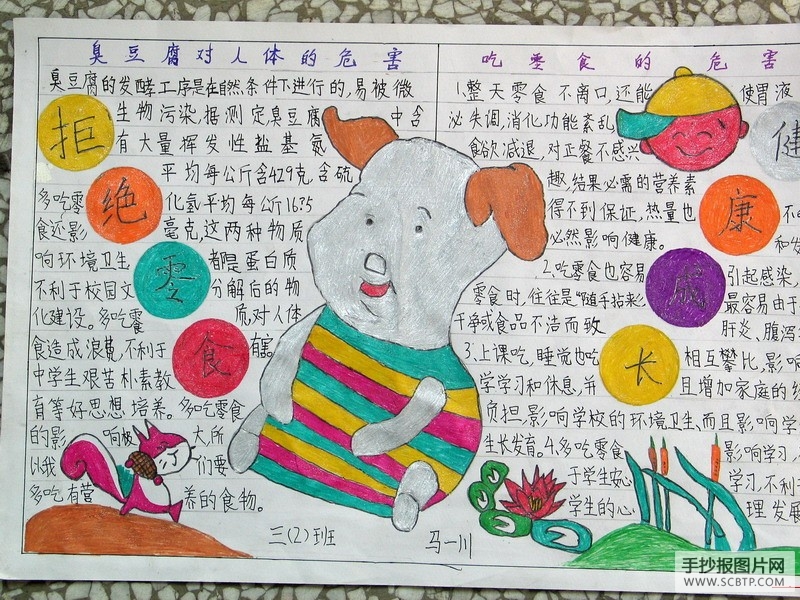 臭豆腐对人体的危害
臭豆腐的发酵工序是在自然条件下进行的,易被微
生物污染,据测定臭豆腐中含
有大量挥发性盐基氮
平均每公斤含429克,含硫
化氢平均每公斤1635
毫克,这两种物质
都是蛋白质
分解后的物
质,对人体
有害。
多吃零
食还影
响环境卫生
不利于校园文
化建设。多吃零
食造成浪费,不利于
中学生艰苦朴素教
育等好思想培养。多吃零食
的影响被大,所
以我们要
多吃有营养的食物。
拒
绝
零
食
三(2)班
马一川
吃零食的危害
1.整天零食不离口,还能使胃液
泌失调,消化功能紊乱
食欲减退,对正餐不感兴
趣,结果必需的营养素
得不到保证,热量也不
必然影响健康。和发
2.吃零食也容易引起感染,
零食时,往往是"随手拈来,最容易由于
干净或食品不洁而致肝炎,腹泻
3.上课吃,睡觉也吃相互攀比,影响
学学习和休息,并且增加家庭的经
负担,影响学校的环境卫生,而且影响学
生长发育。4.多吃零食影响学习,
于学生安心学习,不利于
学生的心理发展
健
康
成
长
手抄报图片网
WWW.SCBTP.COM